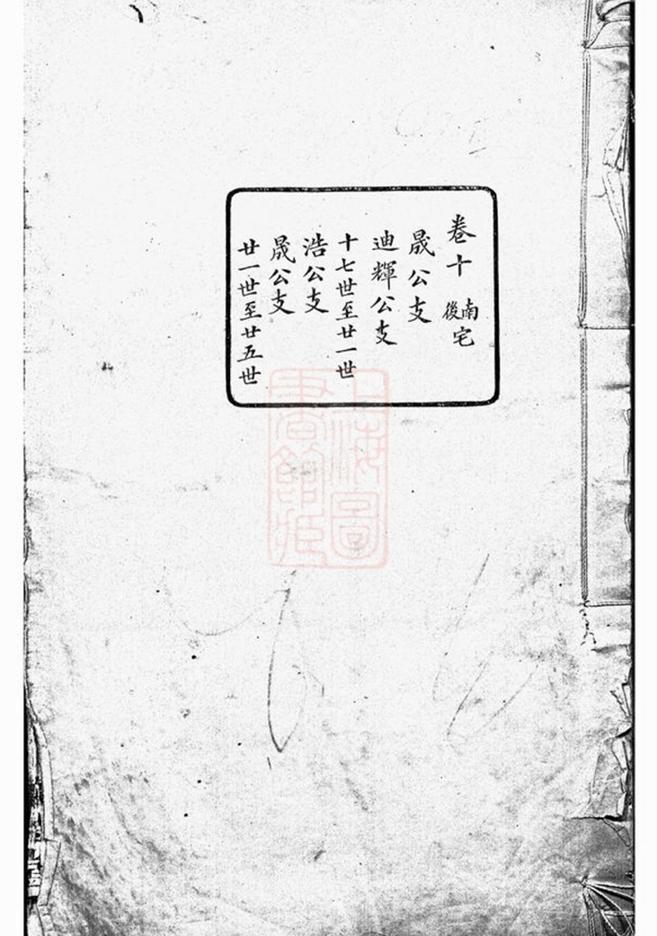 卷十 南後宅
晟公支
迪輝公支
十七世至廿一世
浩公支
晟公支
廿一世至廿五世
上海圖
書館藏